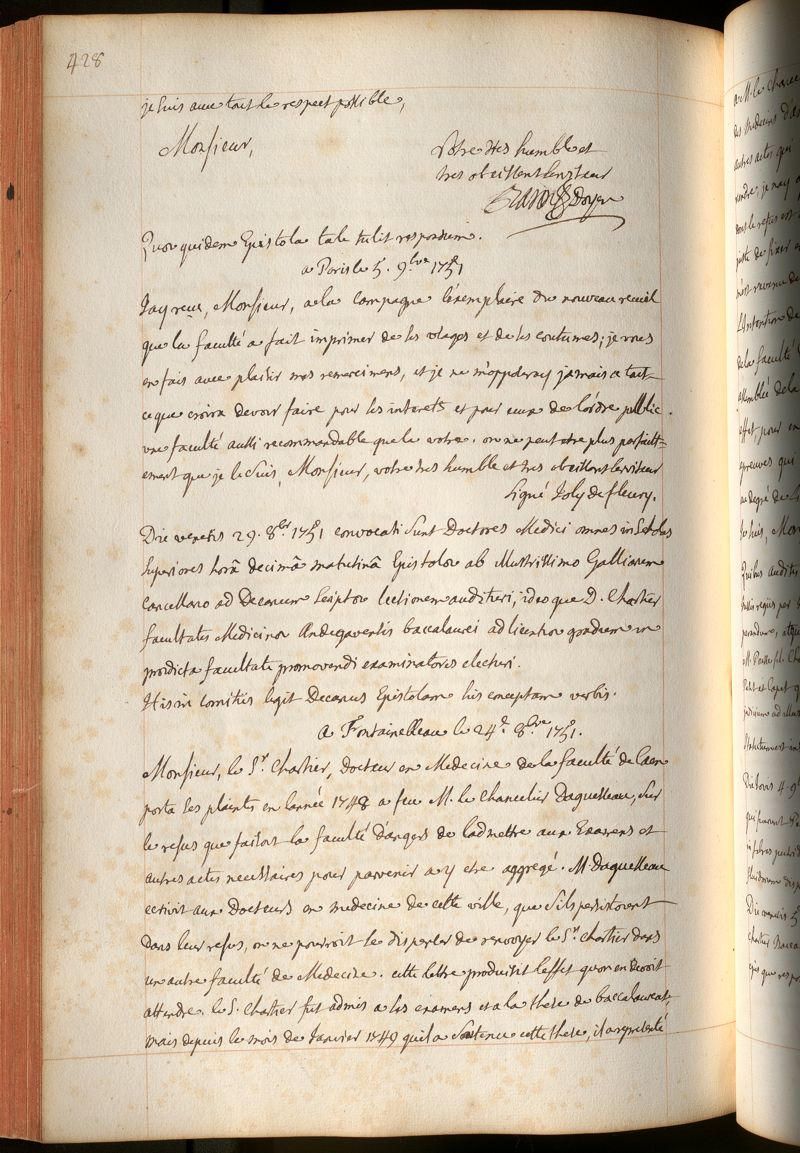 428
je suis avec tout le respect possible,
Monsieur,
Votre tres humble et
tres obeissant serviteur
Baron Doyen
Quae quidem Epistola tale tulit responsum.
a Paris le 5. 9.bre 1751
J'ay reçu, Monsieur, a la campagne l'exemplaire du nouveau recueil
que la faculté a fait imprimer de ses usages et de ses coutumes; je vous
en fais avec plaisir mes remercimens, et je ne m'opposeray jamais a tout
ce que croira devoir faire pour les interets et pour ceux de l'ordre public
une faculté aussi recommandable que la votre. on ne peut etre plus parfait-
ement que je le suis, Monsieur, votre tres humble et tres obeissant serviteur
Signé Joly de fleury.
Die veneris 29. 8.bris 1751 convocati sunt Doctores Medici omnes in Scholas
Superiores horâ decimâ matutinâ Epistolae ab Illustrissimo Galliarum
Cancellario ad Decanum Scriptae lectionem audituri, ideoque D. Chartier
facultatis Medicinae Andegavensis baccalaurei ad licentiae gradum in
praedicta facultate promovendi examinatores electuri.
His in Comitiis legit Decanus Epistolam his conceptam verbis.
a Fontainebleau le 24.e 8.bre 1751.
Monsieur, le Sr. Chartier, Docteur en Medecine de la faculté de Caen
porta ses plaintes en l'année 1748 a feu M. le Chancelier Daguesseau, sur
le refus que faisoit la faculté d'angers de l'admettre aux Examens et
autres actes necessaires pour parvenir a y etre aggregé. M. Daguesseau
ecrivit aux Docteurs en medecine de cette ville, que s'ils persistoient
dans leur refus, on ne pourroit se dispenser de renvoyer le Sr. Chartier dans
une autre faculté de Medecine. cette lettre produisit l'effet qu'on en devoit
attendre. le S. Chartier fut admis a ses examens et a la these de baccalaureat,
mais depuis le mois de Janvier 1749 qu'il a soutenu cette these, il a representé